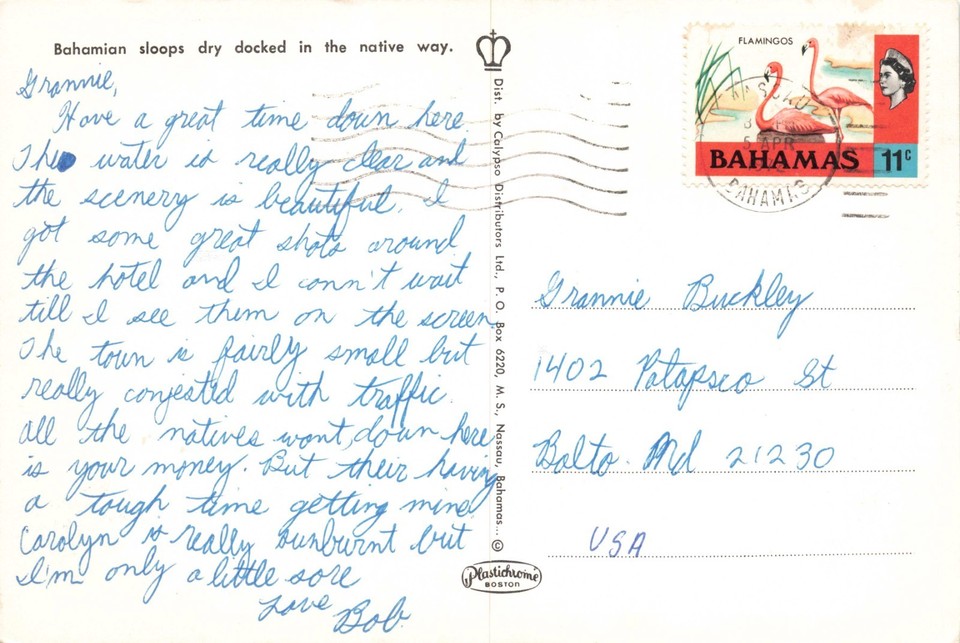 Bahamian sloops dry docked in the native way.
Grannie,
Have a great time down here
The water is really clear and
the scenery is beautiful. I
got some great shots around
the hotel and I cann't wait
till I see them on the screen
The town is fairly small but
really conjested with traffic.
All the natives want down here
is your money. But their having
a tough time getting mine.
Carolyn is really sunburnt but
I'm only a little sore
Love Bob.
Dist. by Calypso Distributors Ltd., P. O. Box 6220, M. S., Nassau, Bahamas... ©
Plastichrome
BOSTON
FLAMINGOS
BAHAMAS 11c
5 APR
BAHAMAS
Grannie Buckley
1402 Patapsco St
Balto. Md 21230
USA